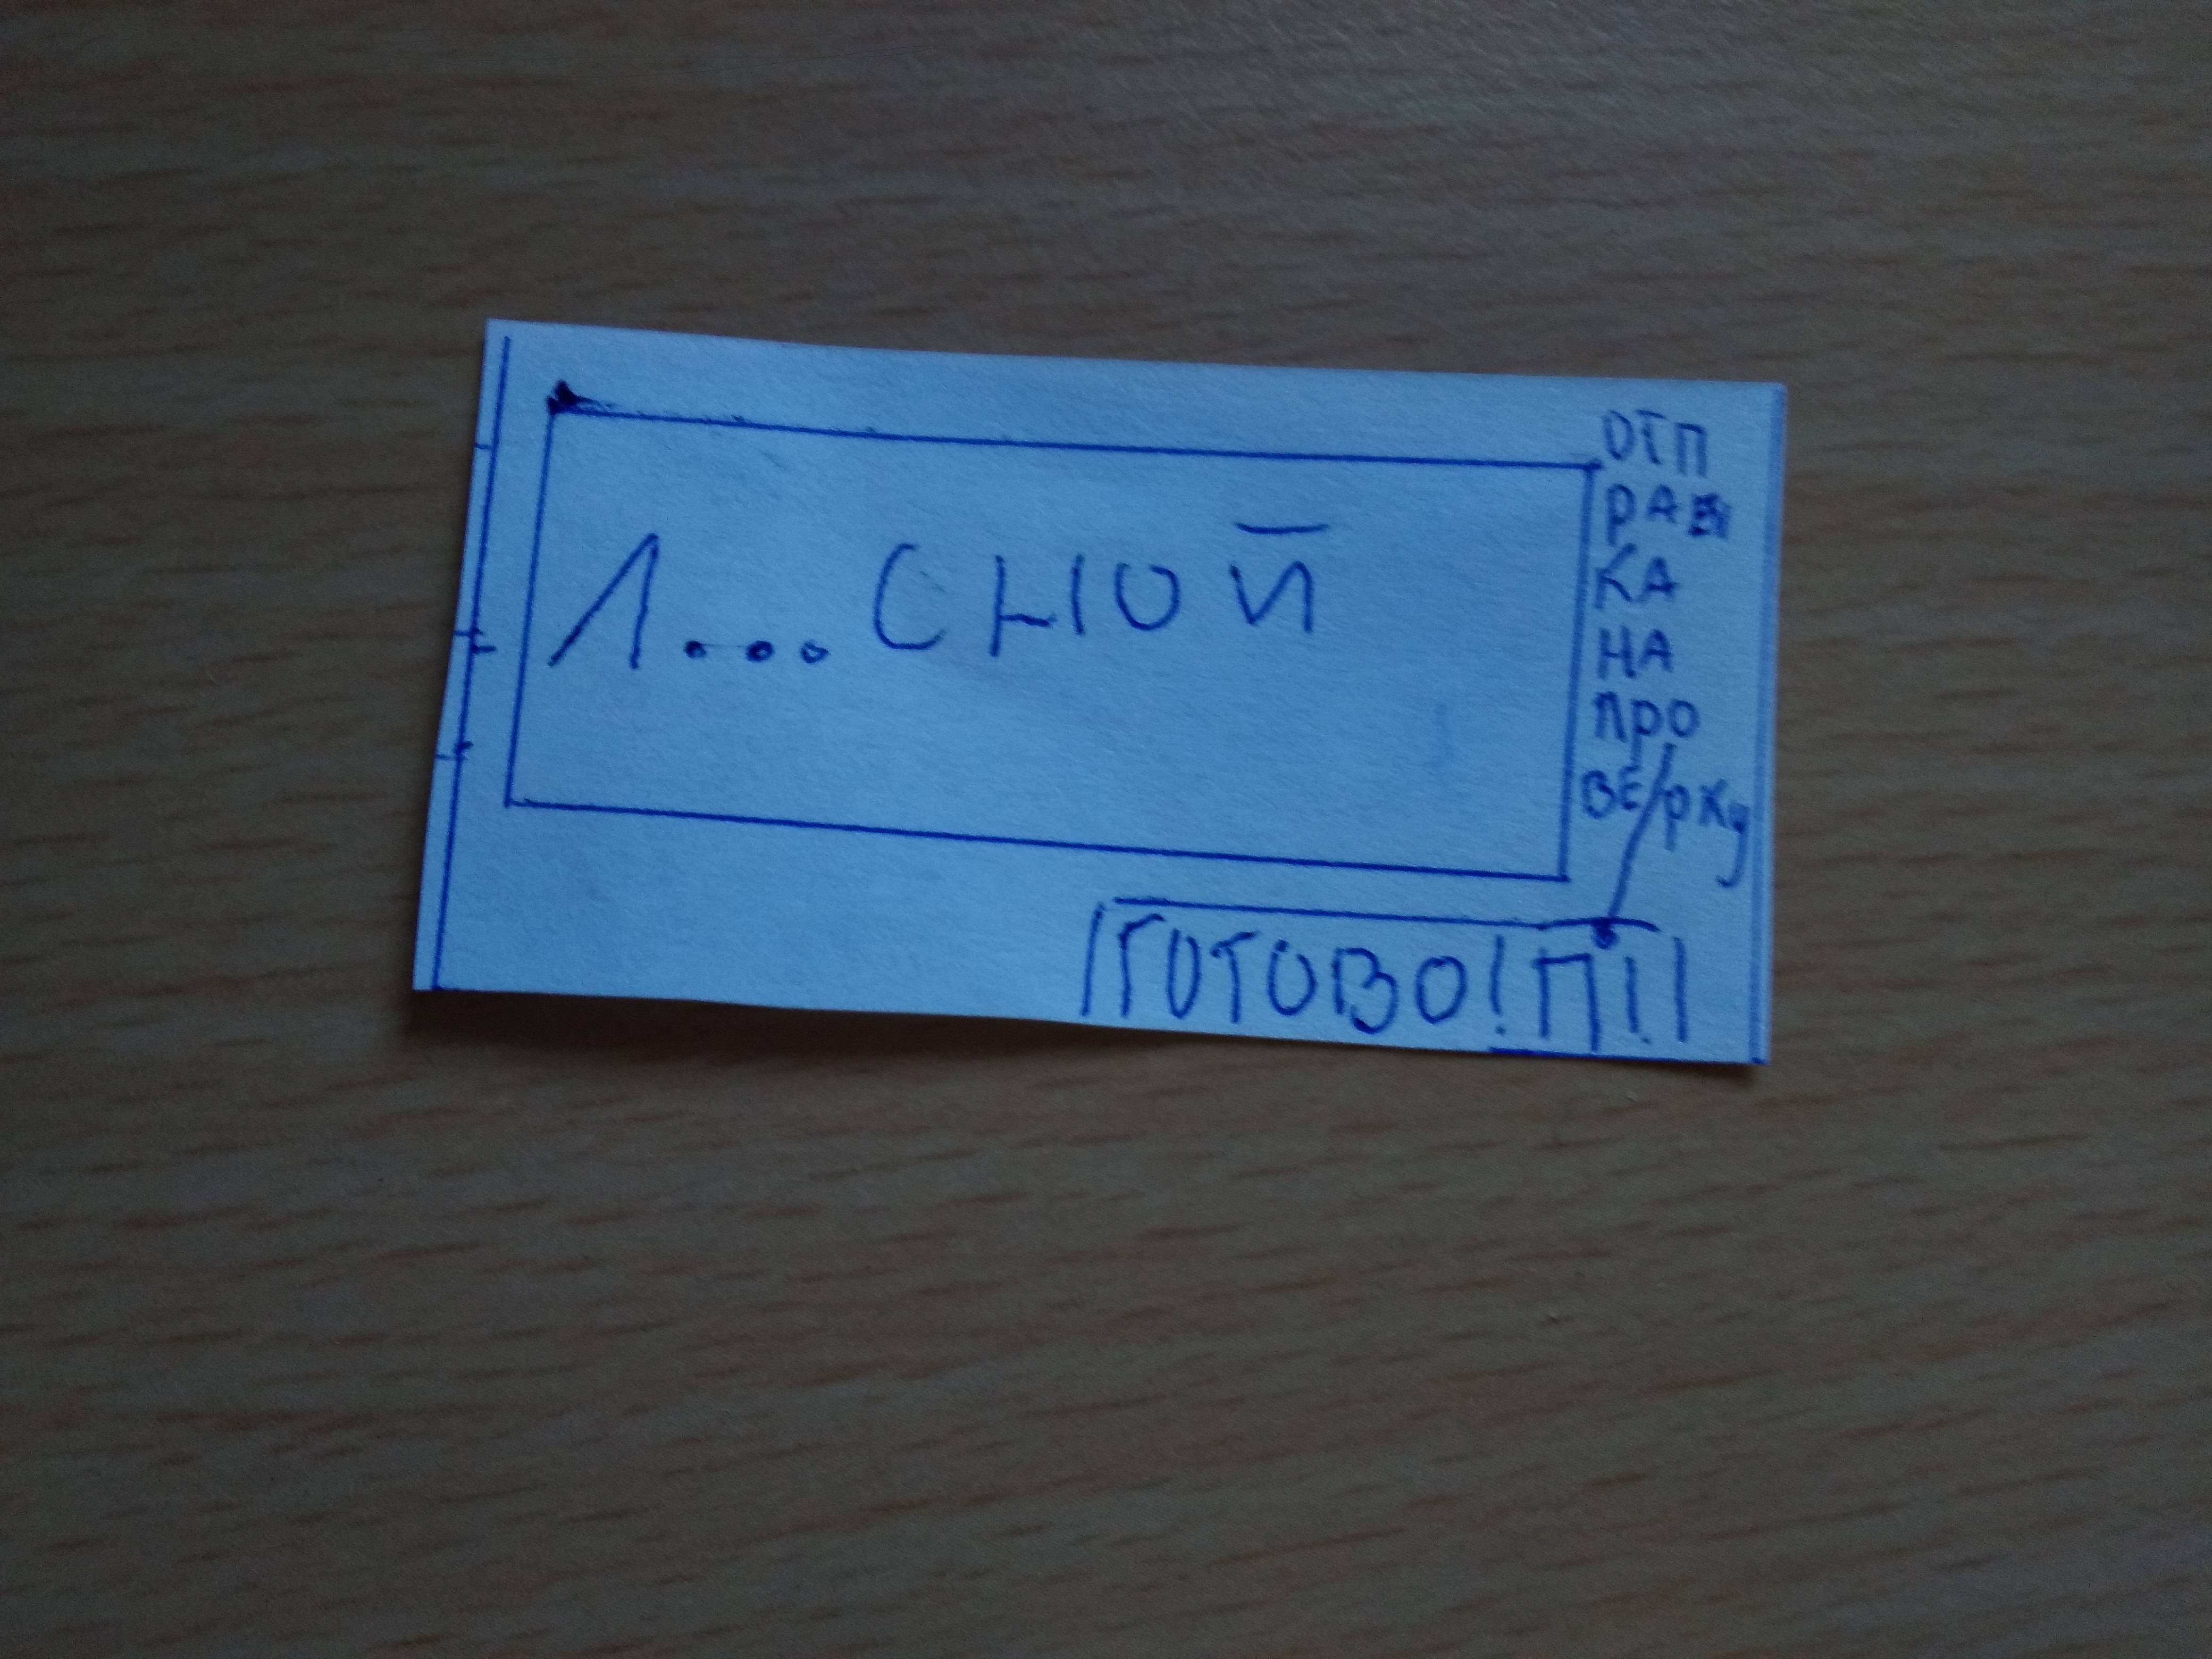 Л...СНОЙ
ОТП
РАВ
КА
НА
ПРО
ВЕРКУ
ГОТОВО! П!